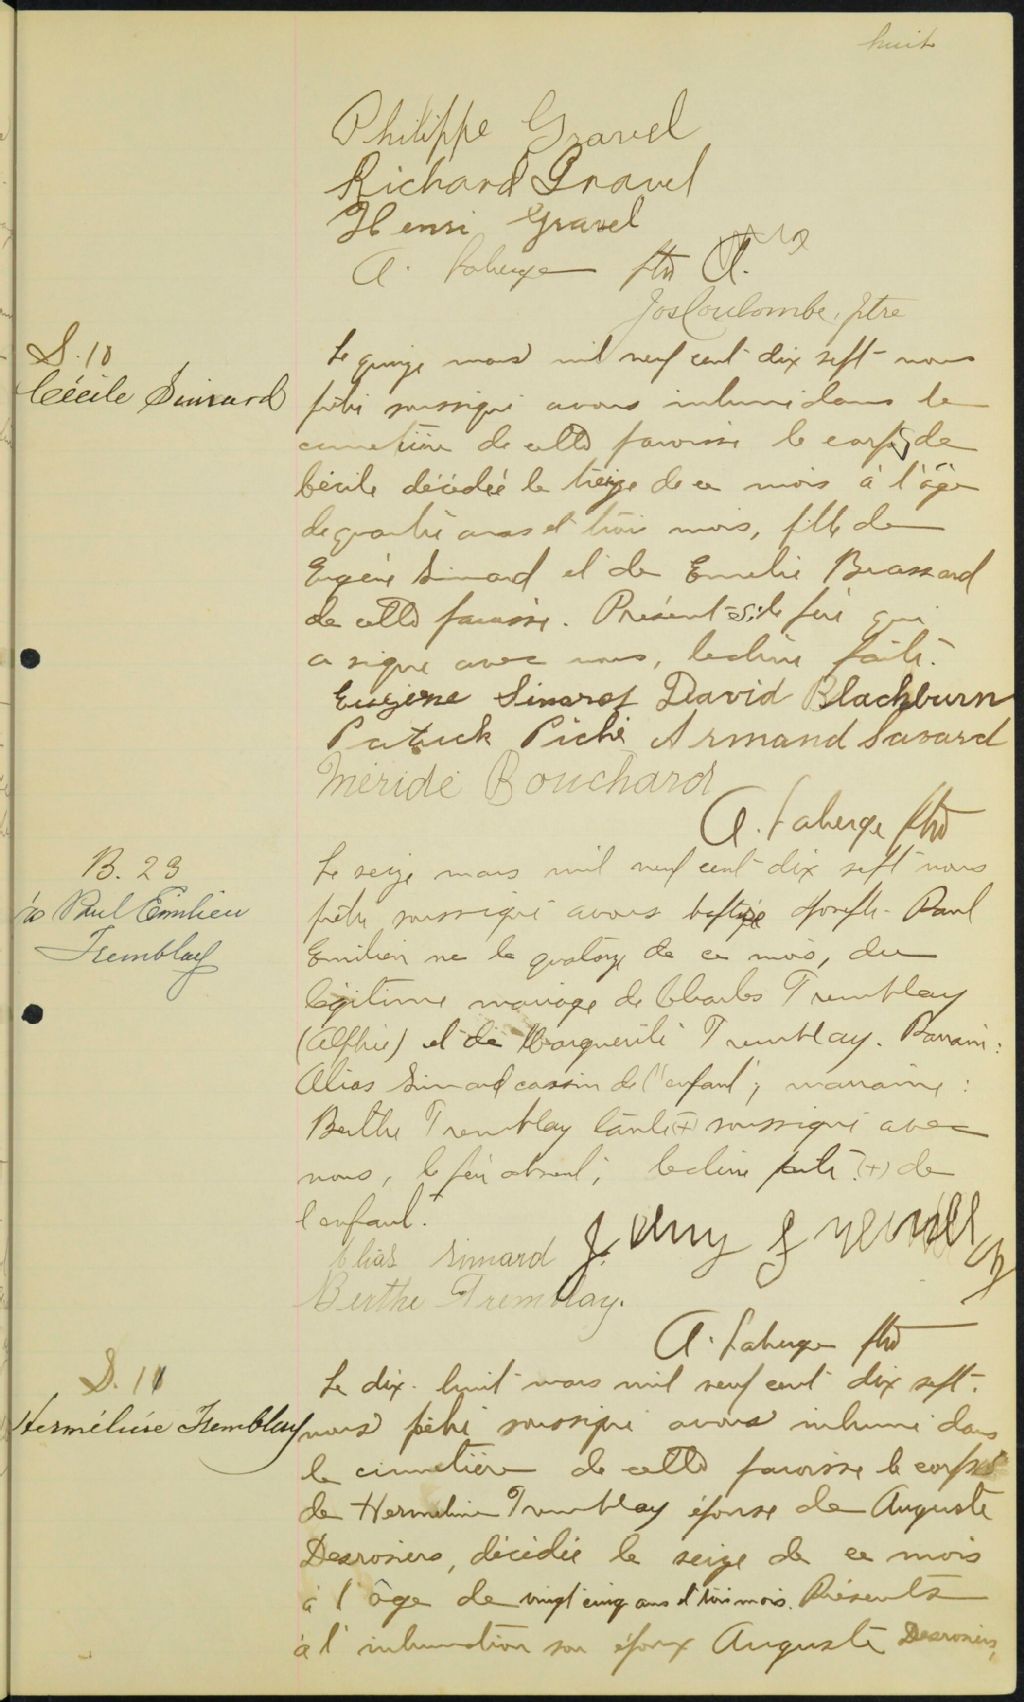 huit
Philippe Gravel
Richard Gravel
Henri Gravel
A. Laberge ptre
Jos Coulombe, ptre
S. 10
Cécile Simard
Le quinze mars mil neuf cent dix sept nous
prêtre soussigné avons inhumé dans le
cimetière de cette paroisse le corps de
Cécile décédée le treize de ce mois à l'âge
de quatre ans et trois mois, fille de
Eugène Simard et de Emelie Brassard
de cette paroisse. Présents: le père qui
a signé avec nous, lecture faite.
Eugène Simard David Blackburn
Patrick Piché Armand Savard
Méridé Bouchard
A. Laberge ptre
B. 23
Paul Emilien
Tremblay
Le seize mars mil neuf cent dix sept nous
prêtre soussigné avons baptisé Joseph Paul
Emilien né le quatorze de ce mois, du
légitime mariage de Charles Tremblay
(Alphée) et de Marguerite Tremblay. Parrain:
Alias Simard cousin de l'enfant; marraine:
Berthe Tremblay tante (+) soussigné avec
nous, le père absent; lecture faite. (+) de
l'enfant.
Elias Simard
Berthe Tremblay.
A. Laberge ptre
S. 11
Herméline Tremblay
Le dix-huit mars mil neuf cent dix sept.
nous prêtre soussigné avons inhumé dans
le cimetière de cette paroisse le corps
de Hermeline Tremblay épouse de Auguste
Desrosiers, décédée le seize de ce mois
à l'âge de vingt cinq ans et trois mois. Présents
à l'inhumation son époux Auguste Desrosiers,